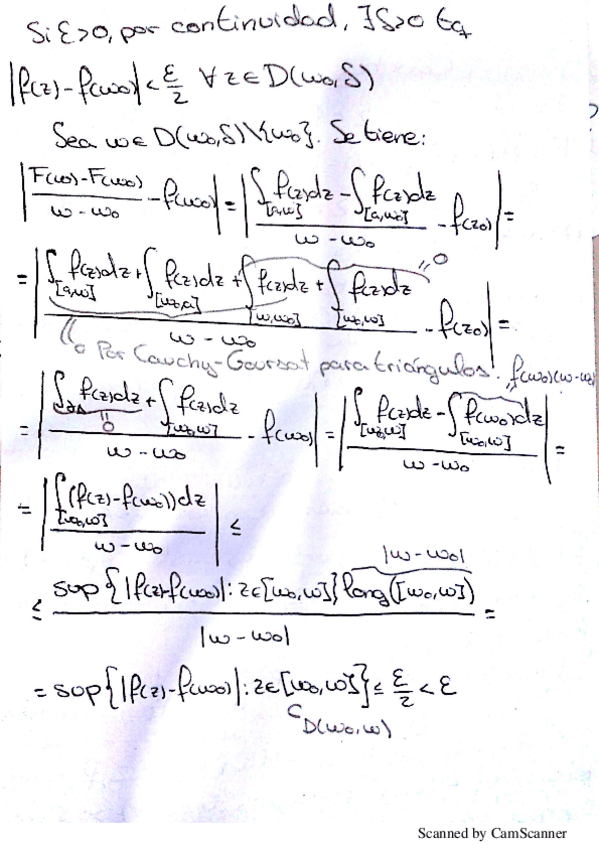 Si ε>0, por continuidad, ∃δ>0 tq
|f(z)-f(w₀)|<ε/2 ∀z∈D(w₀,δ)
Sea w∈D(w₀,δ)\{w₀}. Se tiene:
|(F(w)-F(w₀))/(w-w₀) - f(w₀)| = |(∫_[a,w] f(z)dz - ∫_[a,w₀] f(z)dz)/(w-w₀) - f(z₀)| =
= |(∫_[a,w] f(z)dz + ∫_[w₀,a] f(z)dz + ∫_[w,w₀] f(z)dz + ∫_[w₀,w] f(z)dz)/(w-w₀) - f(z₀)| =
=0
=0 Por Cauchy-Goursat para triángulos.
f(w₀)(w-w₀)
= |(∫_∂Δ f(z)dz + ∫_[w₀,w] f(z)dz)/(w-w₀) - f(w₀)| = |(∫_[w₀,w] f(z)dz - ∫_[w₀,w] f(w₀)dz)/(w-w₀)| =
=0
= |(∫_[w₀,w] (f(z)-f(w₀))dz)/(w-w₀)| ≤
|w-w₀|
≤ (sup{|f(z)-f(w₀)|: z∈[w₀,w]} long([w₀,w]))/|w-w₀| =
= sup{|f(z)-f(w₀)|: z∈[w₀,w]} ≤ ε/2 < ε
⊂ D(w₀,w)
Scanned by CamScanner